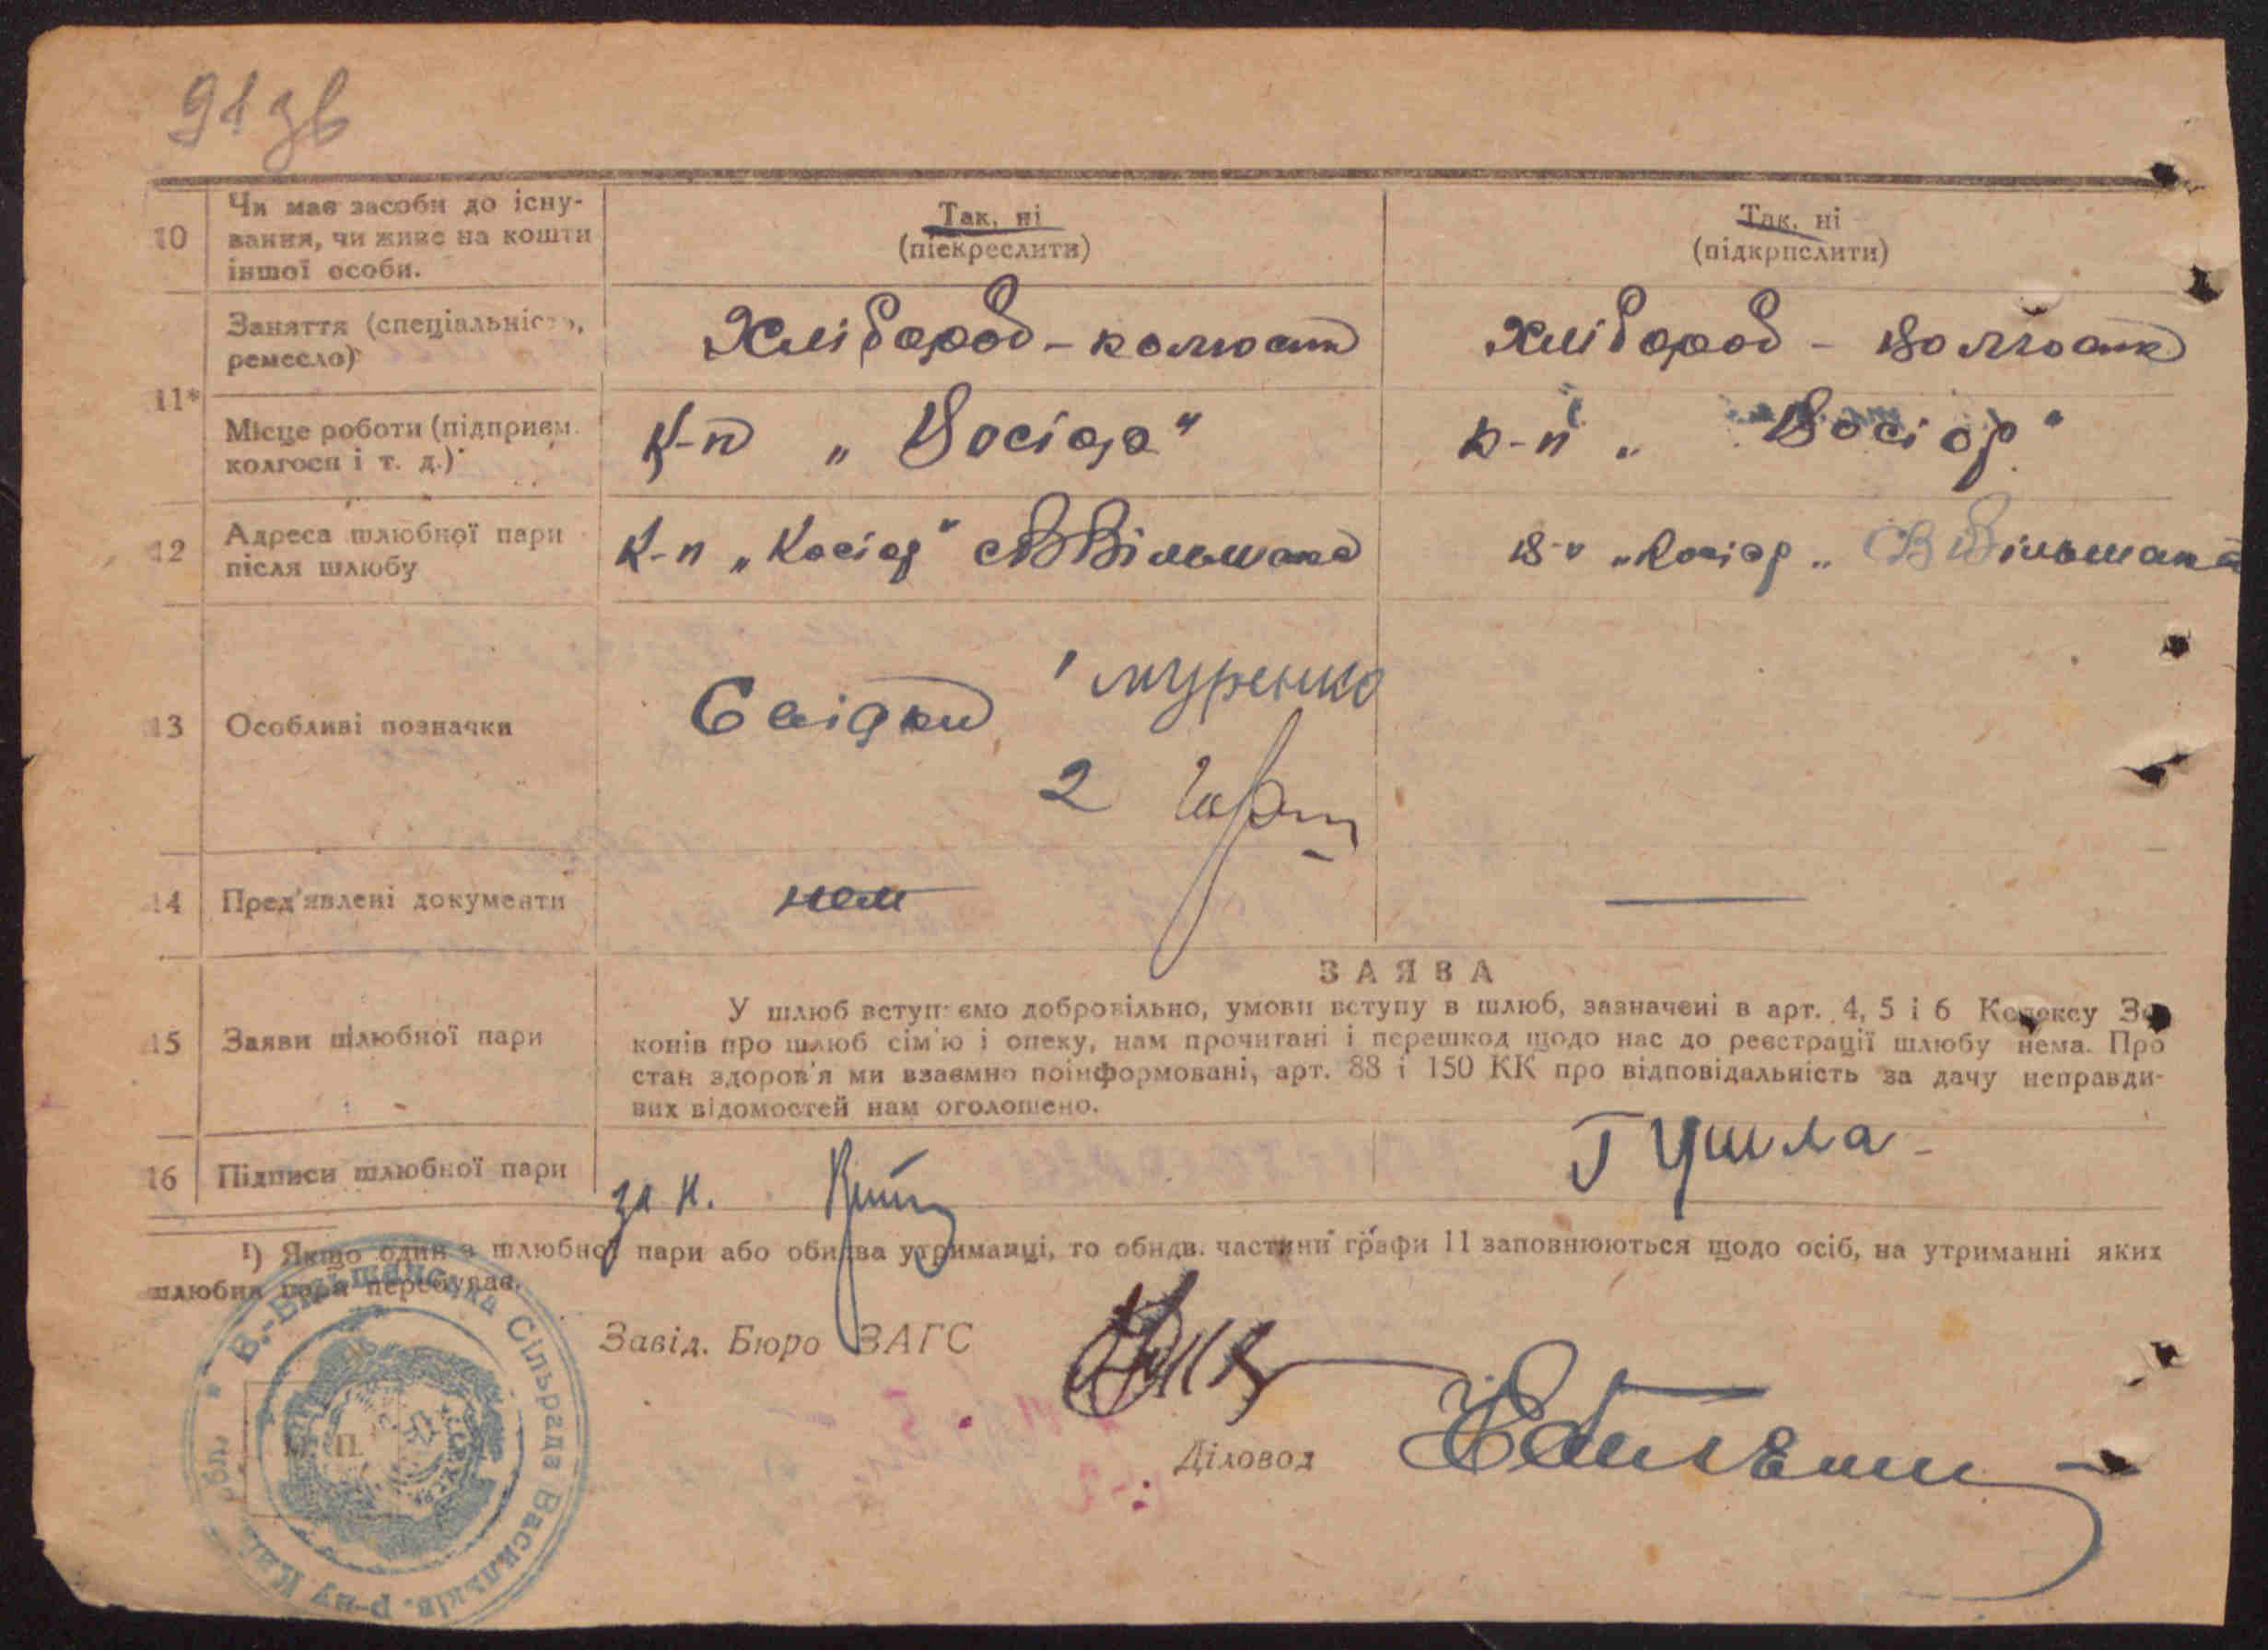 91 зв
10 Чи має засоби до існу-
вання, чи живе на кошти
іншої особи.
Так, ні
(піекреслити)
Так, ні
(підкрпслити)
11* Заняття (спеціальність,
ремесло)
Хлібороб - колгоспн
Хлібороб - колгоспн
Місце роботи (підприєм.
колгосп і т. д.)
К-п „Косіора"
К-п „Косіор"
12 Адреса шлюбної пари
після шлюбу
К-п „Косіор" с В Вільшана
К-п „Косіор„ с В Вільшана
13 Особливі позначки
Свідки 1 Муренко
2
14 Пред'явлені документи
нет
15 Заяви шлюбної пари
ЗАЯВА
У шлюб вступаємо добровільно, умови вступу в шлюб, зазначені в арт. 4, 5 і 6 Кодексу За-
конів про шлюб сім'ю і опеку, нам прочитані і перешкод щодо нас до реєстрації шлюбу нема. Про
стан здоров'я ми взаємно поінформовані, арт. 88 і 150 КК про відповідальність за дачу неправди-
вих відомостей нам оголошено.
16 Підписи шлюбної пари
за н.
Гушла
¹) Якщо один з шлюбної пари або обидва утриманці, то обидв. частини графи 11 заповнюються щодо осіб, на утриманні яких
шлюбна пара перебуває.
Завід. Бюро ЗАГС
Діловод
В.-Вільшанська Сільрада Васильків. р-ну
М. П.